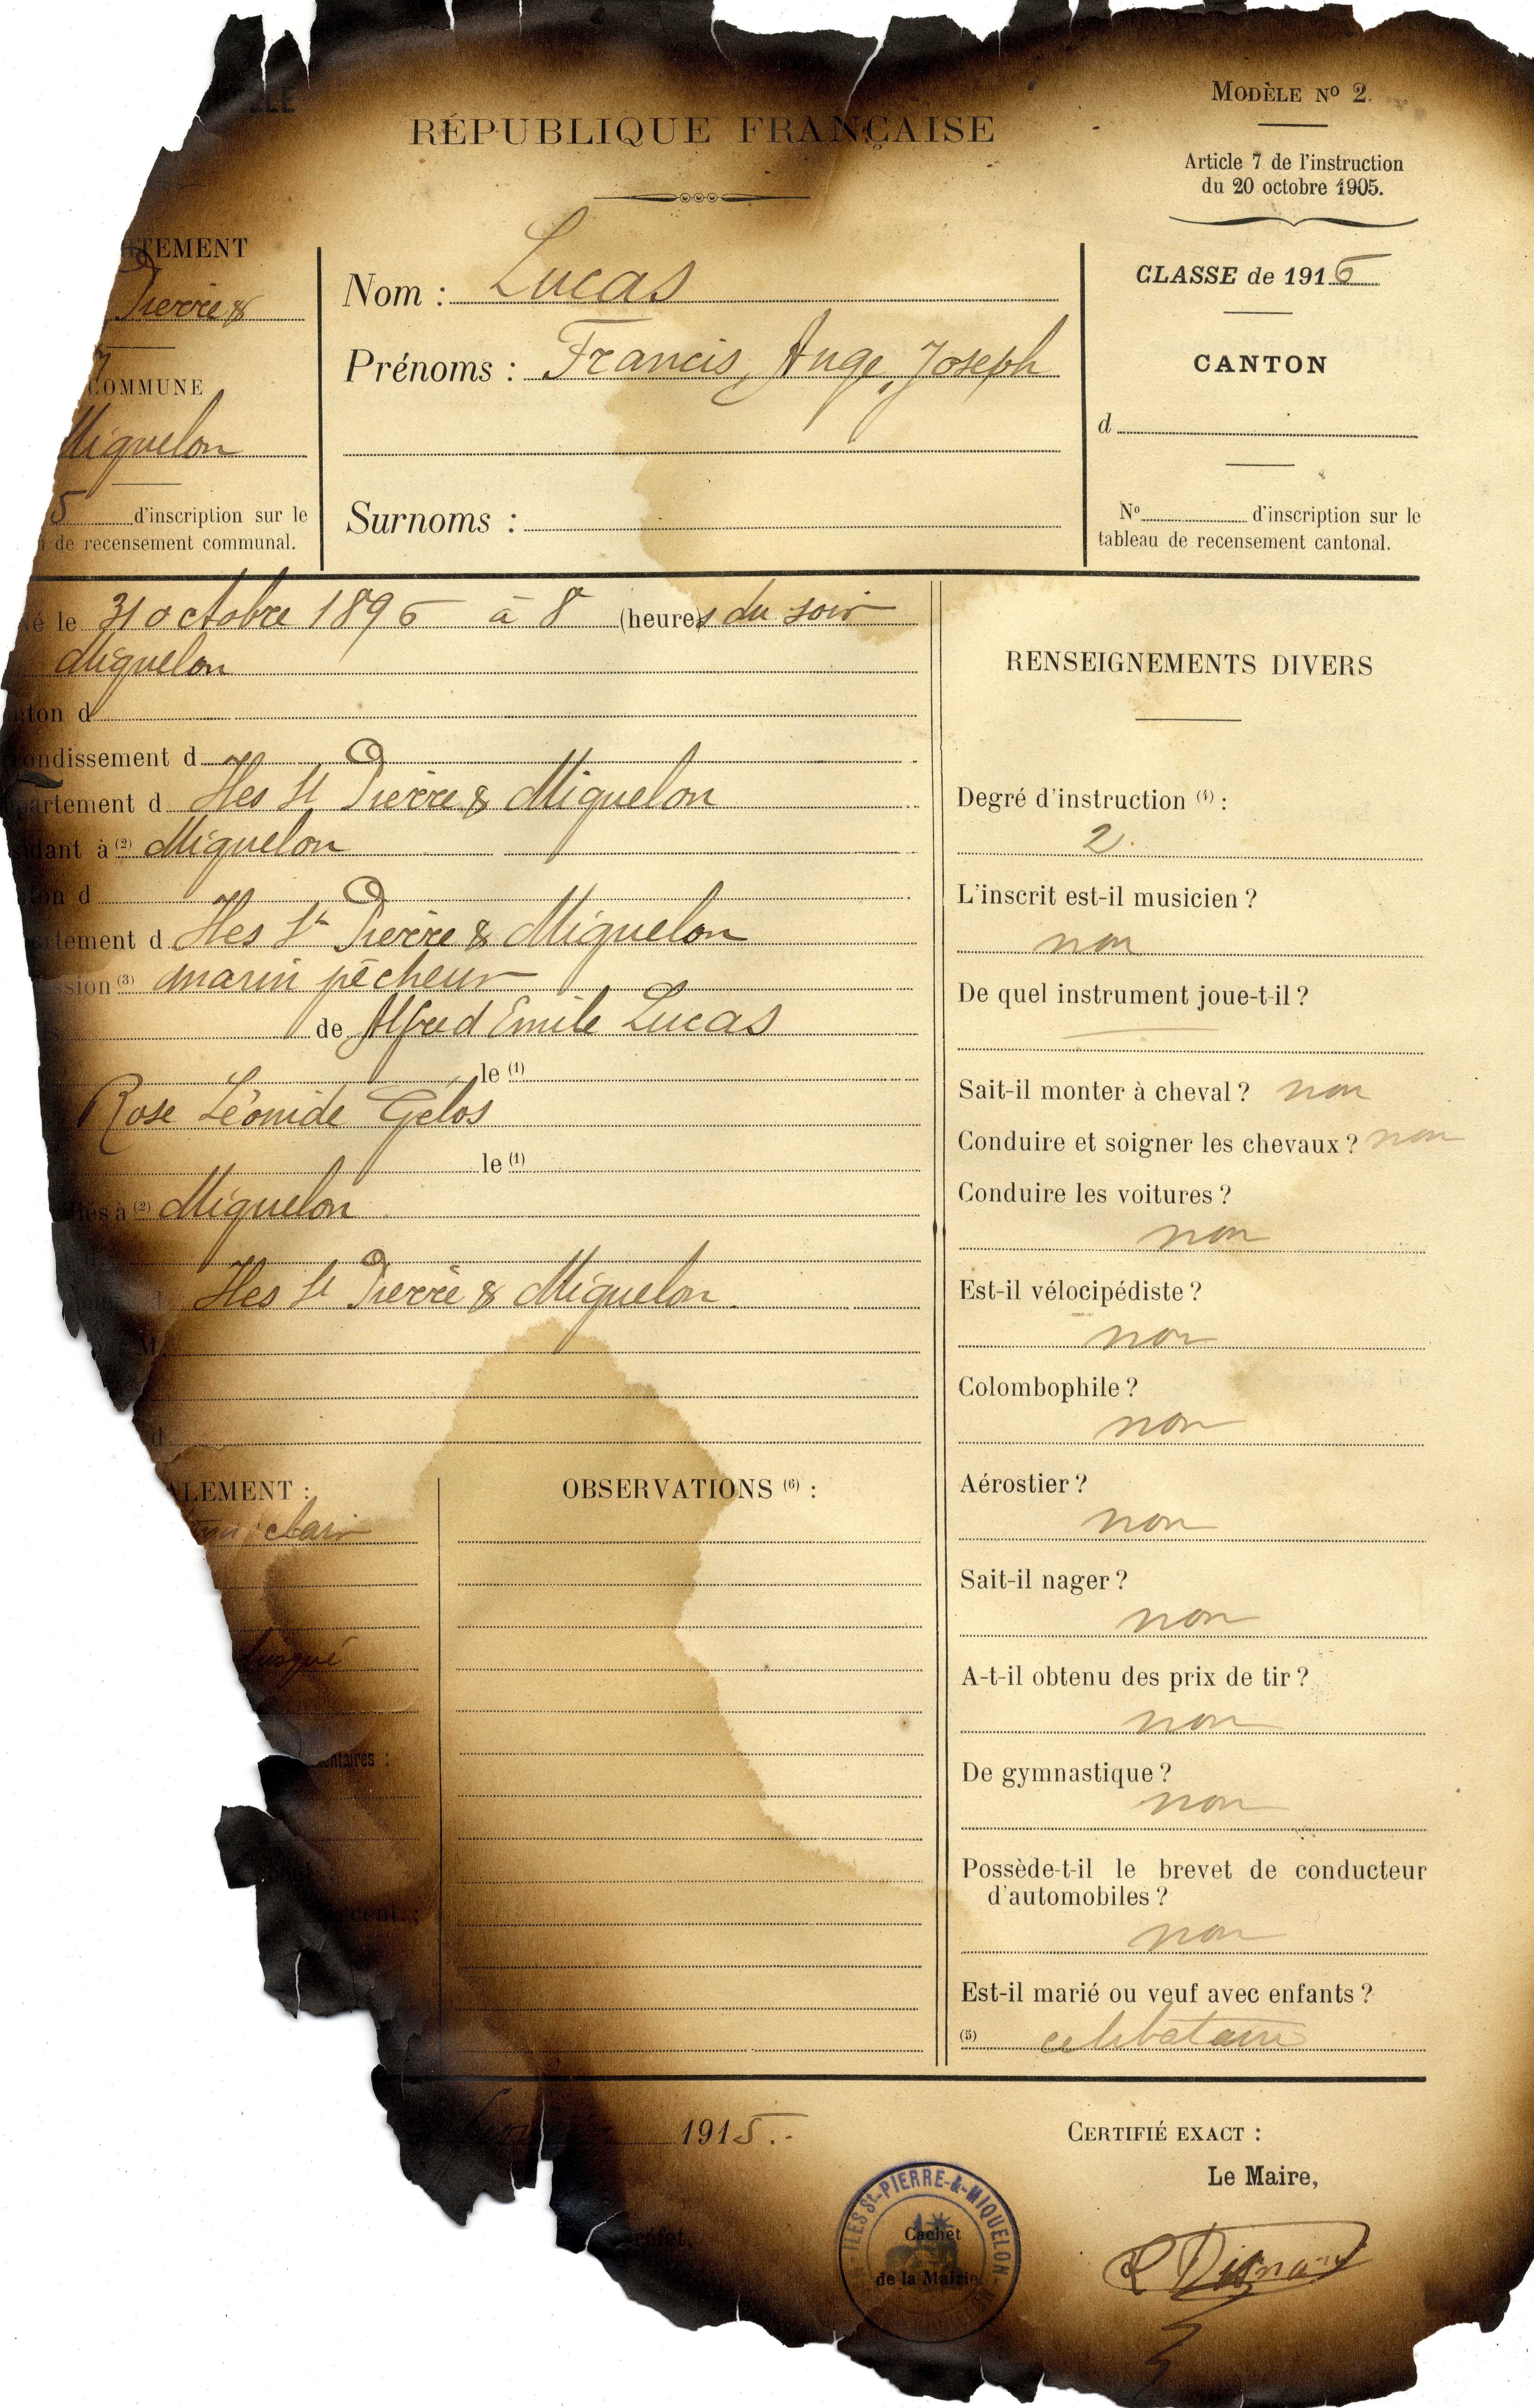 LLE
RÉPUBLIQUE FRANÇAISE
MODÈLE Nº 2.
Article 7 de l'instruction
du 20 octobre 1905.
TEMENT
Pierre &
COMMUNE
Miquelon
5 d'inscription sur le
de recensement communal.
Nom : Lucas
Prénoms : Francis, Ange, Joseph
Surnoms :
CLASSE de 1916
CANTON
d
Nº d'inscription sur le
tableau de recensement cantonal.
né le 31 octobre 1896 à 8 (heures du soir
Miquelon
ton d
ondissement d
artement d Iles St Pierre & Miquelon
idant à (2) Miquelon
ton d
artement d Iles St Pierre & Miquelon
ssion (3) marin pêcheur
de Alfred Emile Lucas
le (1)
Rose Léonide Gélos
le (1)
liés à (2) Miquelon
d Iles St Pierre & Miquelon
M.
d
ALEMENT :
clair
busqué
entaires :
cent. ;
OBSERVATIONS (6) :
RENSEIGNEMENTS DIVERS
Degré d'instruction (4) :
2.
L'inscrit est-il musicien ?
non
De quel instrument joue-t-il ?
Sait-il monter à cheval ? non
Conduire et soigner les chevaux ? non
Conduire les voitures ?
non
Est-il vélocipédiste ?
non
Colombophile ?
non
Aérostier ?
non
Sait-il nager ?
non
A-t-il obtenu des prix de tir ?
non
De gymnastique ?
non
Possède-t-il le brevet de conducteur
d'automobiles ?
non
Est-il marié ou veuf avec enfants ?
(5) celibataire
1915.
CERTIFIÉ EXACT :
Le Maire,
réfet,
ILES St-PIERRE-&-MIQUELON
Cachet
de la Mairie.